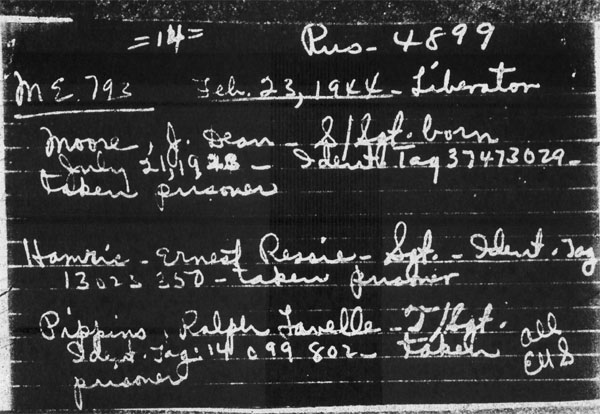 =14= Rus- 4899
ME. 793 Feb. 23, 1944 - Liberator
Moore, J. Dean - S/Sgt. born
July 21, 19 - Ident. Tag 37473029-
taken prisoner
Hamric - Ernest Ressie - Sgt. - Ident. Tag
13023 350 - taken prisoner
Pippins, Ralph Lavelle - T/Sgt.
Ident. Tag: 14 099 802 - taken
prisoner
all
EUS